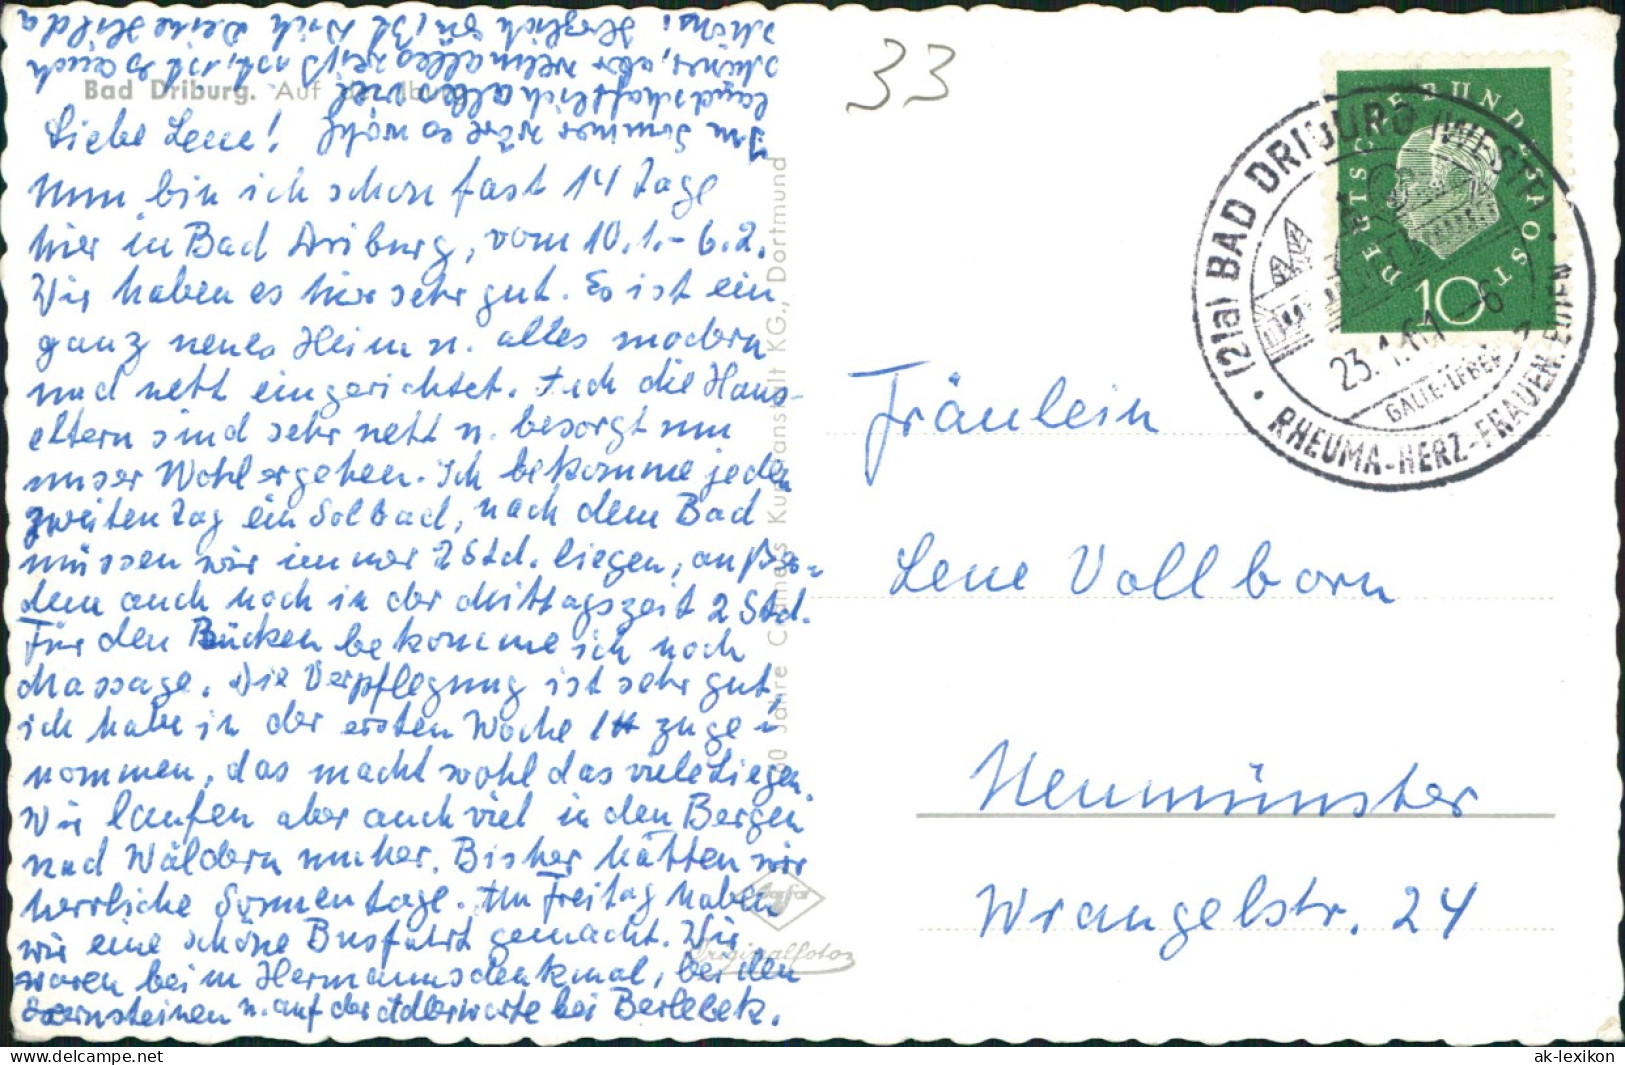 33
Bad Driburg. Auf
Liebe Lene!
Nun bin ich schon fast 14 Tage
hier in Bad Driburg, vom 10.1.-6.2.
Wir haben es hier sehr gut. Es ist ein
ganz neues Heim u. alles modern
und nett eingerichtet. Auch die Haus-
eltern sind sehr nett u. besorgt um
unser Wohlergehen. Ich bekomme jeden
zweiten Tag ein Solbad, nach dem Bad
müssen wir immer 2 Std. liegen, außer-
dem auch noch in der Mittagszeit 2 Std.
Für den Rücken bekomme ich noch
Massage. Die Verpflegung ist sehr gut,
ich habe in der ersten Woche 1 ℔ zuge-
nommen, das macht wohl das viele Liegen.
Wir laufen aber auch viel in den Bergen
und Wäldern umher. Bisher hatten wir
herrliche Sonnentage. Am Freitag haben
wir eine schöne Busfahrt gemacht. Wir
waren beim Hermannsdenkmal, bei den
Externsteinen u. auf der Adlerwarte bei Berlebek.
Im Sommer wäre es wohl
landschaftlich alles viel
schöner, aber wenn alles weiß ist, ist es auch
schön. Herzlich grüßt Dich Deine Hilda
Jahre Cramers Kunstanstalt KG., Dortmund
Agfa
Originalfoto
DEUTSCHE BUNDESPOST
10
(21a) BAD DRIBURG (WESTF)
23.1.61-6
GALLE-LEBER
RHEUMA-HERZ-FRAUEN
Fräulein
Lene Vollborn
Neumünster
Wrangelstr. 24
https://www.delcampe.net
ak-lexikon